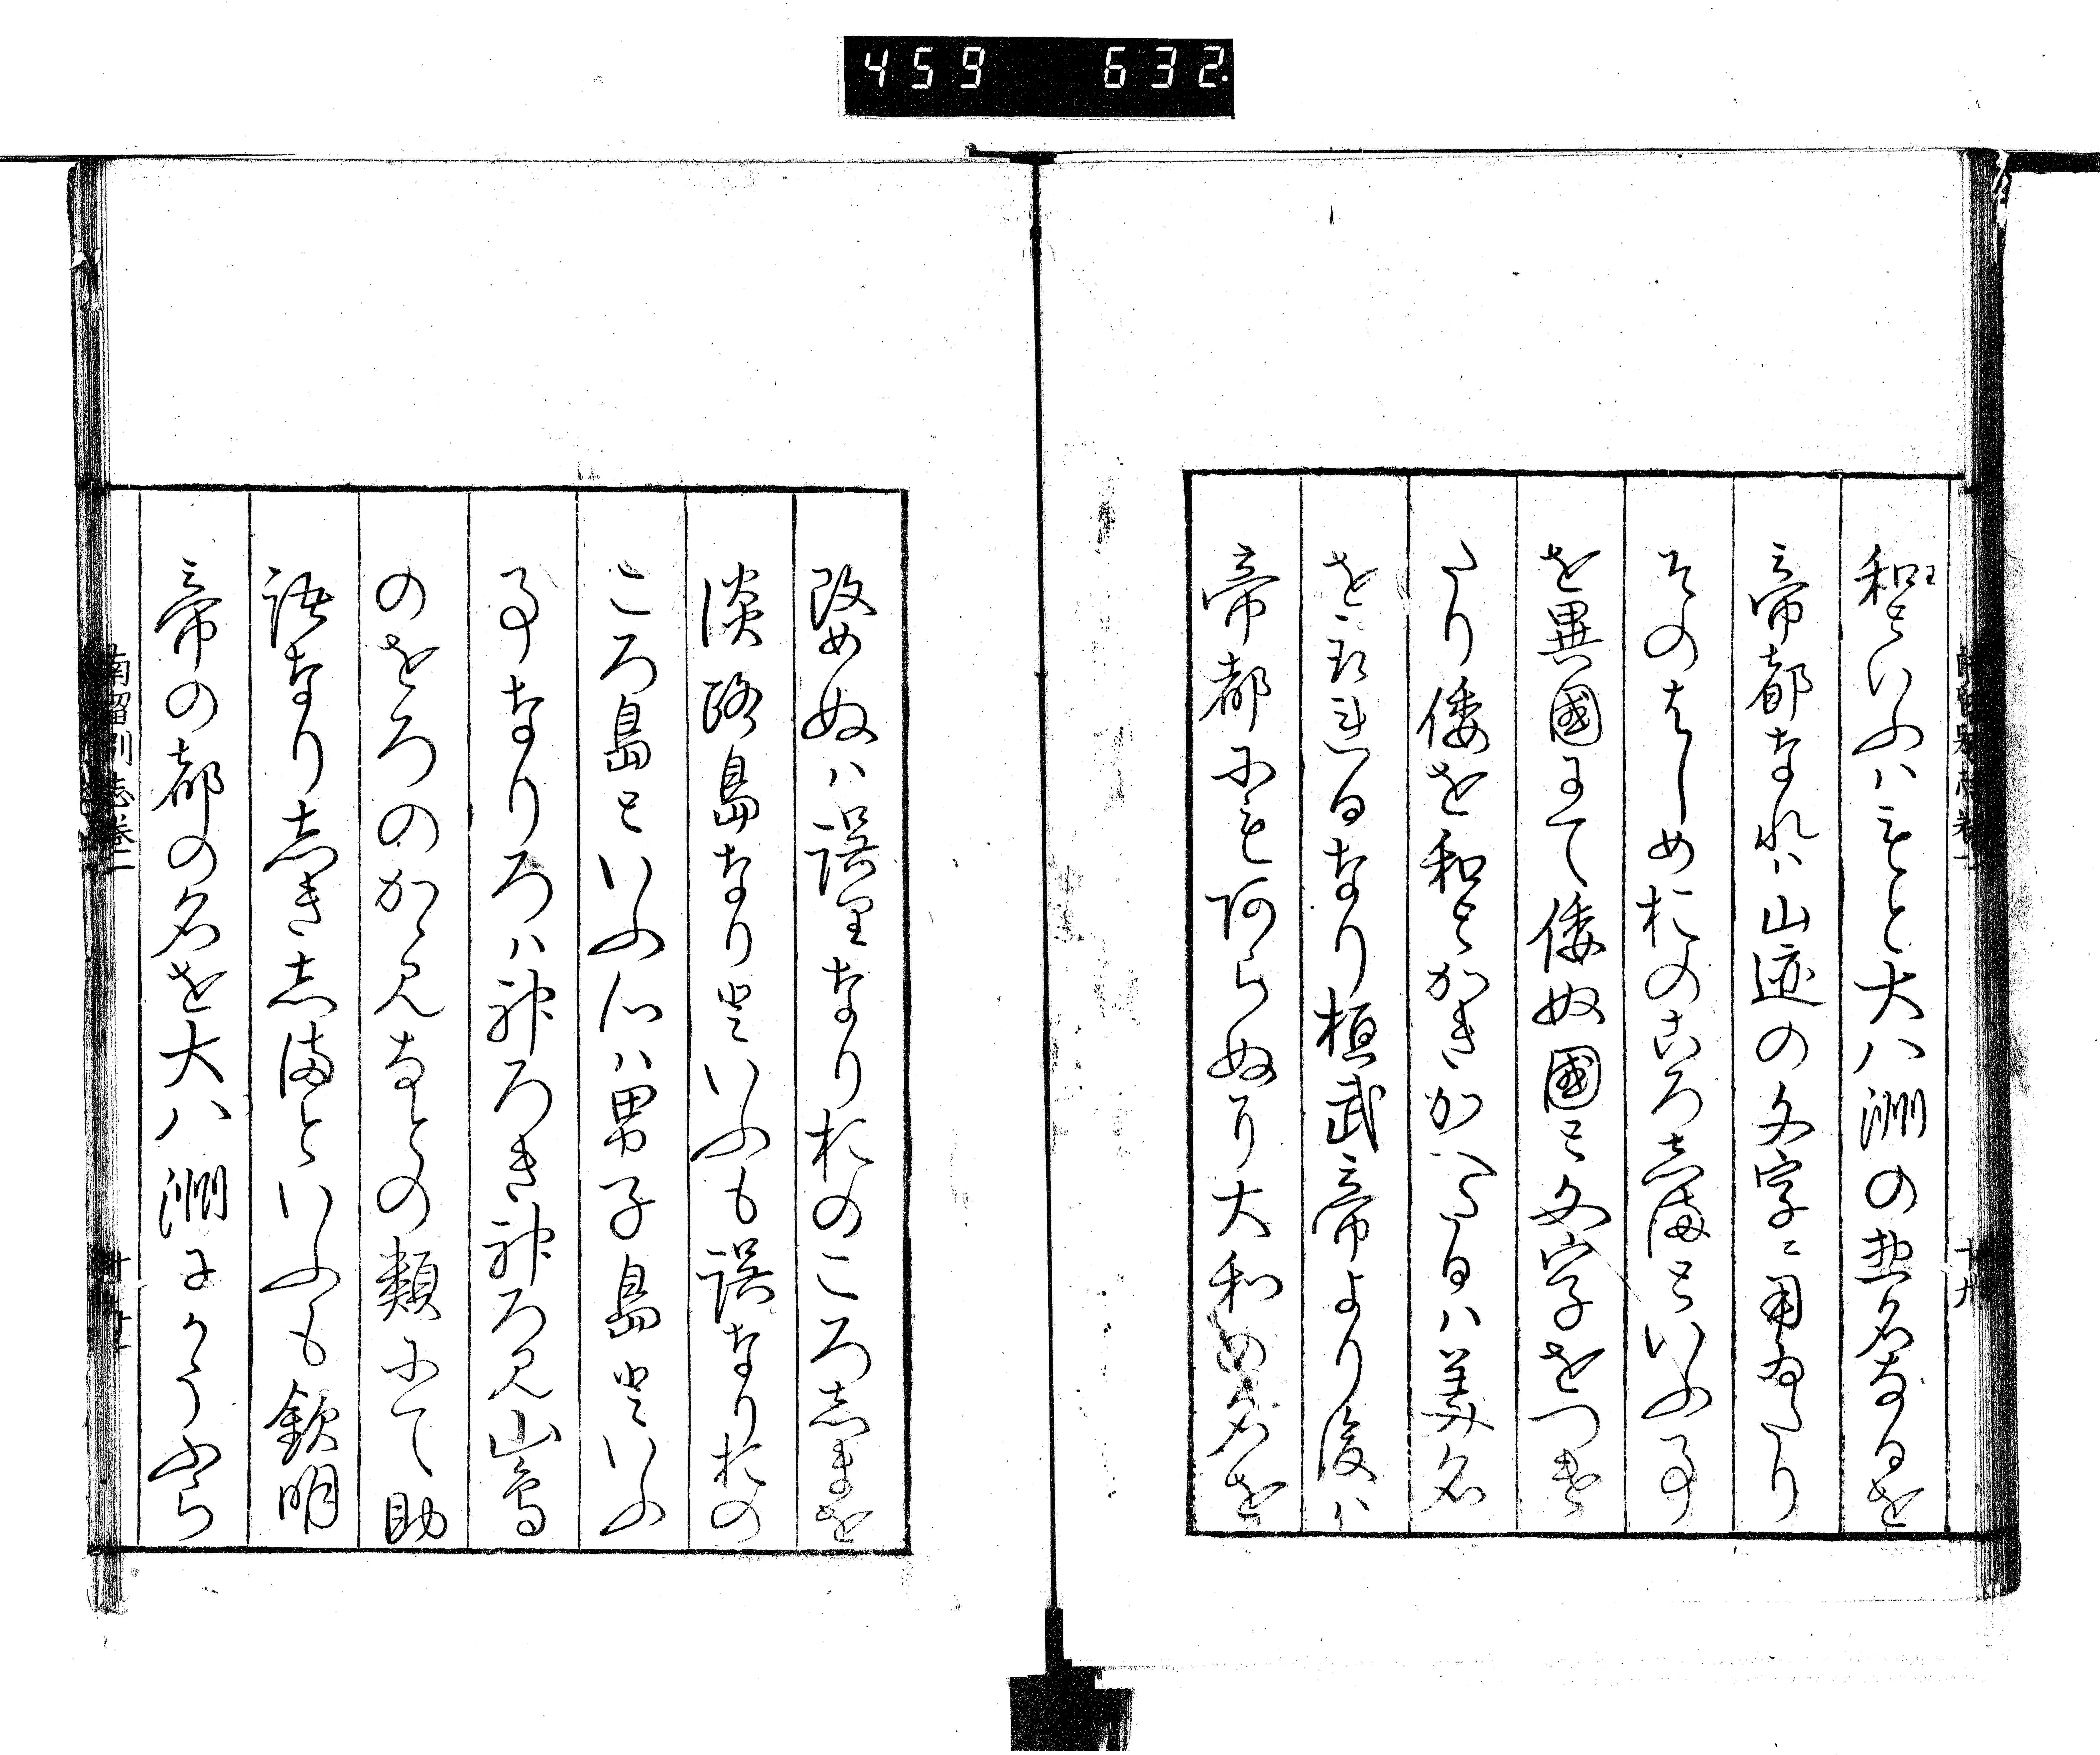 459 632
和といふハもと大八洲の惣名なるを
帝都なれハ山迹の文字ニ用ゐたり
そのはしめおのころしまといふ事
を異國にて倭奴國と文字をつけ
たり倭を和とかきかへたるハ美名
をえらはれたるなり桓武帝より後ハ
帝都にも阿らぬに大和の名を
改めぬハ誤里なりおのころしまを
淡路島なりといふも誤なりおの
ころ島といふ心ハ男子島といふ
事なりろハ神ろき神ろ見山鳥
のをろのかゝ見なとの類にて助
語なりしきしまといふも欽明
帝の都の名を大八洲にかうふら
南留別志巻二